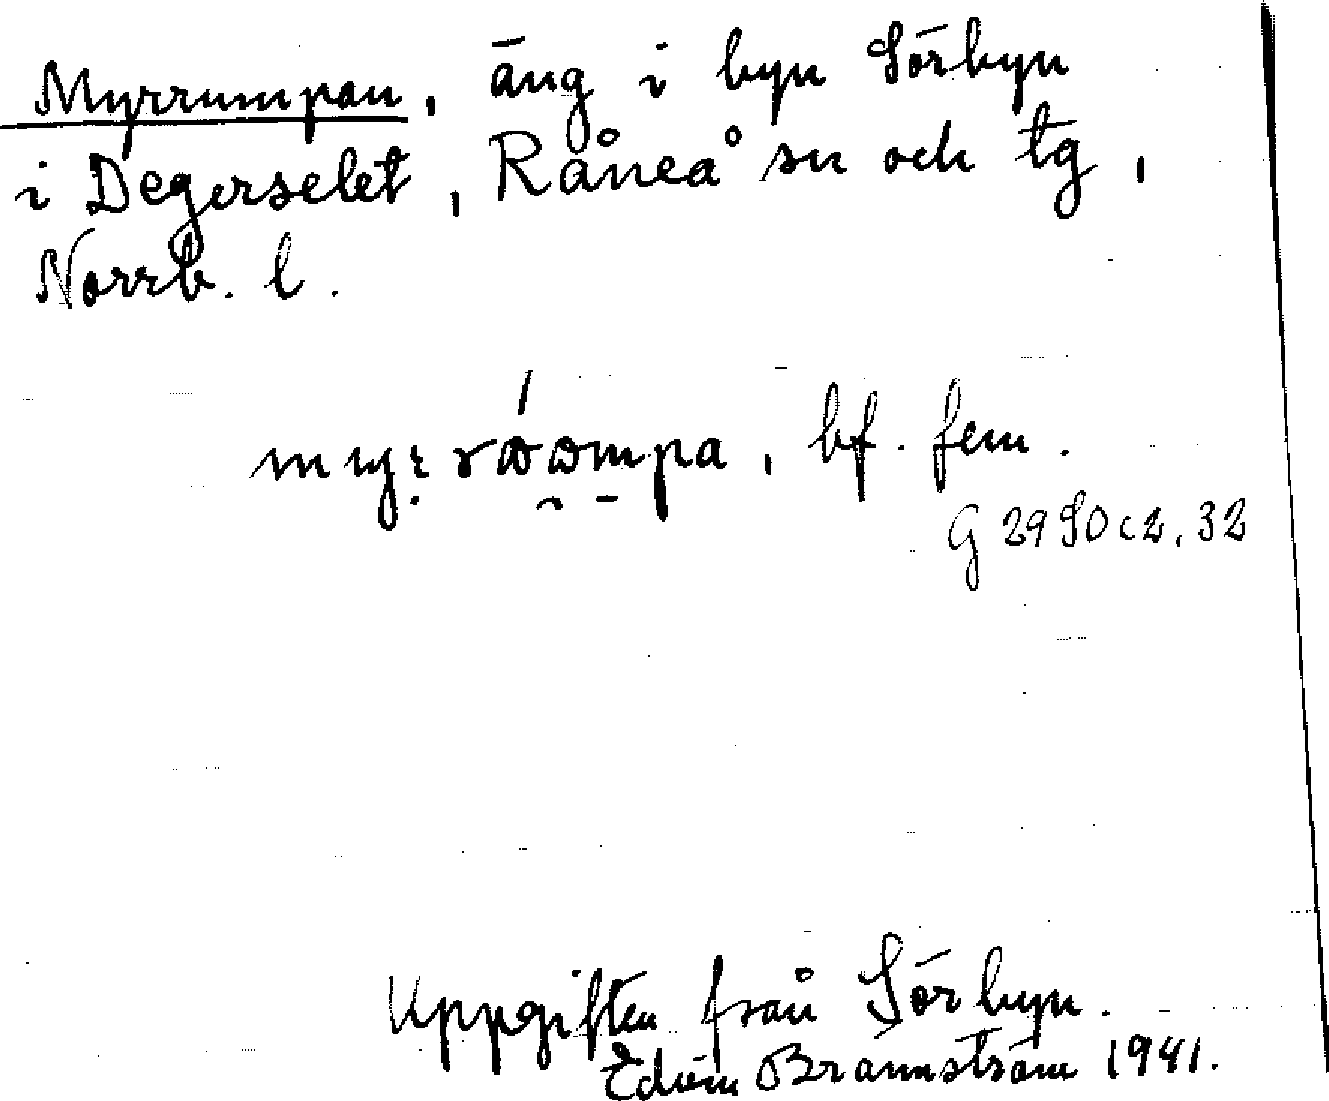 Myrrumpan, äng i byn Sörbyn
i Degerselet, Råneå sn och tg,
Norrb. l.
bf. fem.
G 29 SO c 2, 32
Uppgiften från Sörbyn.
Edvin Brännström 1941.